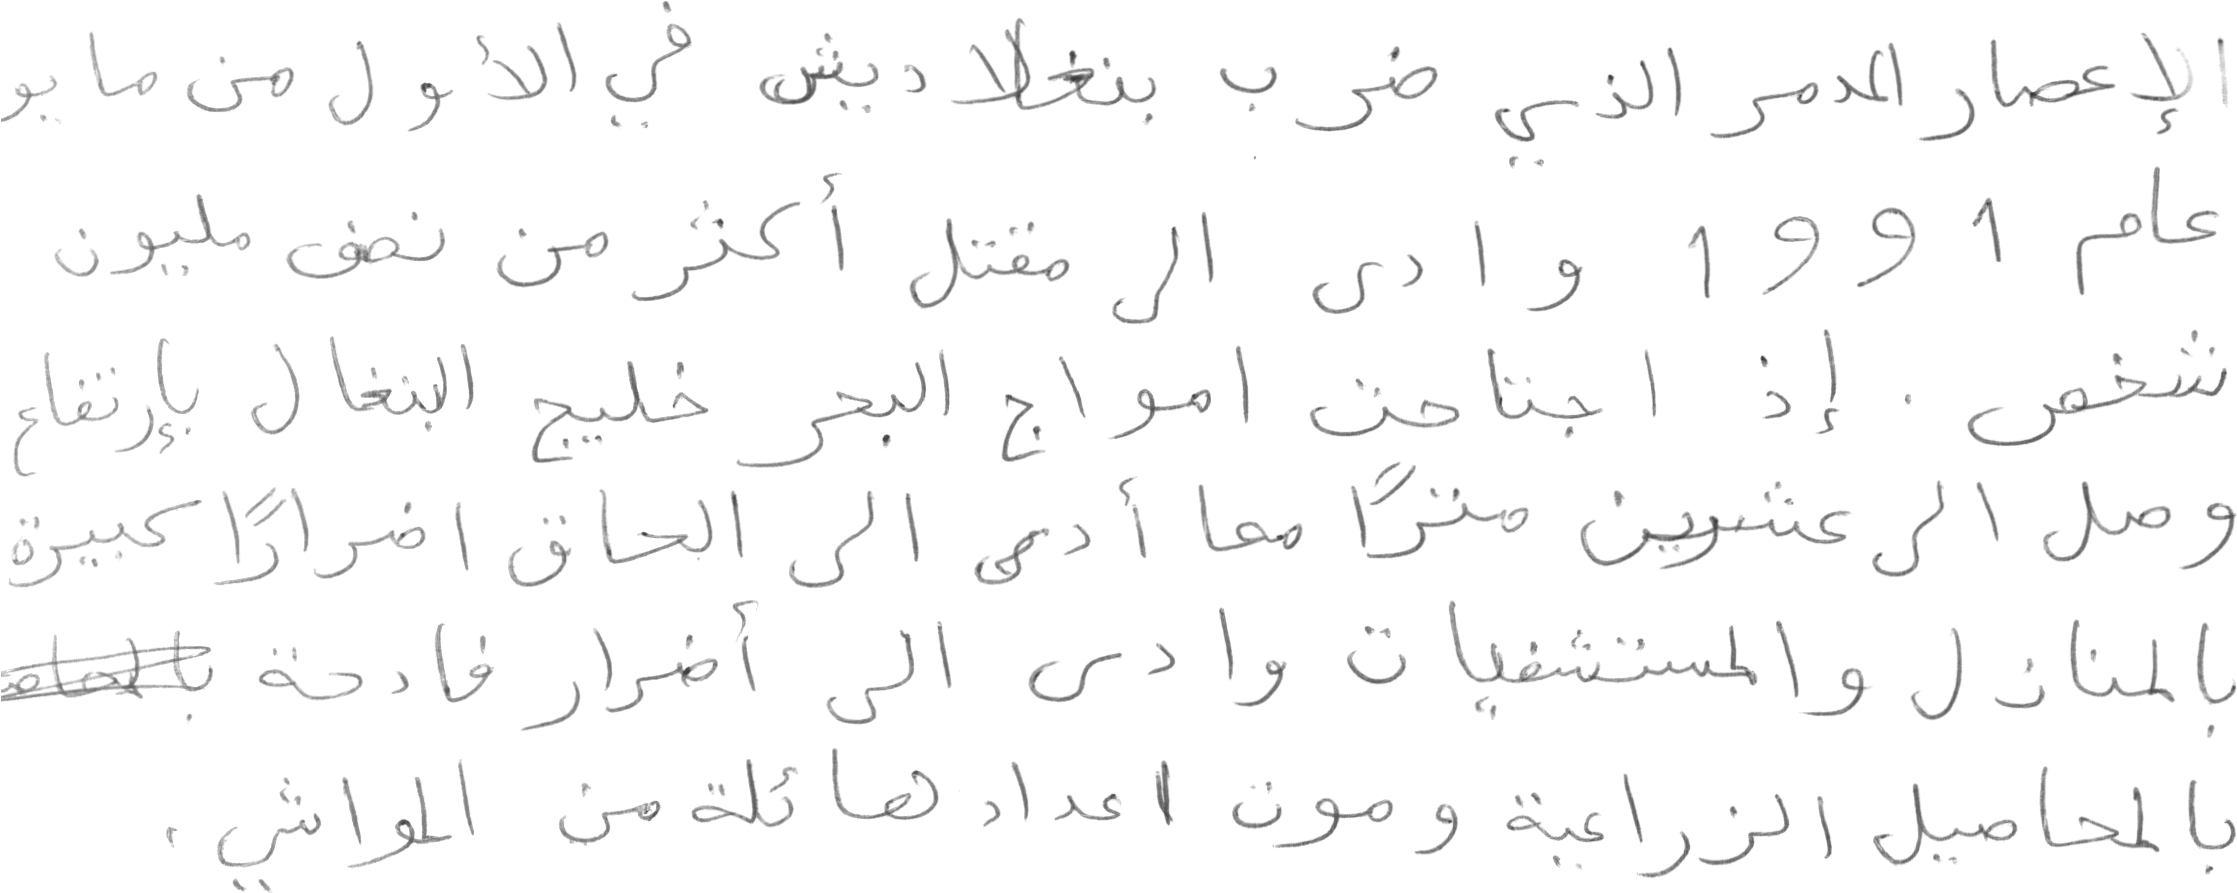 الإعصار المدمر الذي ضرب بنغلاديش في الأول من مايو
عام 1991 وادى الى مقتل أكثر من نصف مليون
شخص. إذ اجتاحت امواج البحر خليج البنغال بإرتفاع
وصل الى عشرين مترًا مما أدى الى الحاق اضرارًا كبيرة
بالمنازل والمستشفيات وادى الى أضرار فادحة
بالمحاصيل الزراعية وموت اعداد هائلة من المواشي.